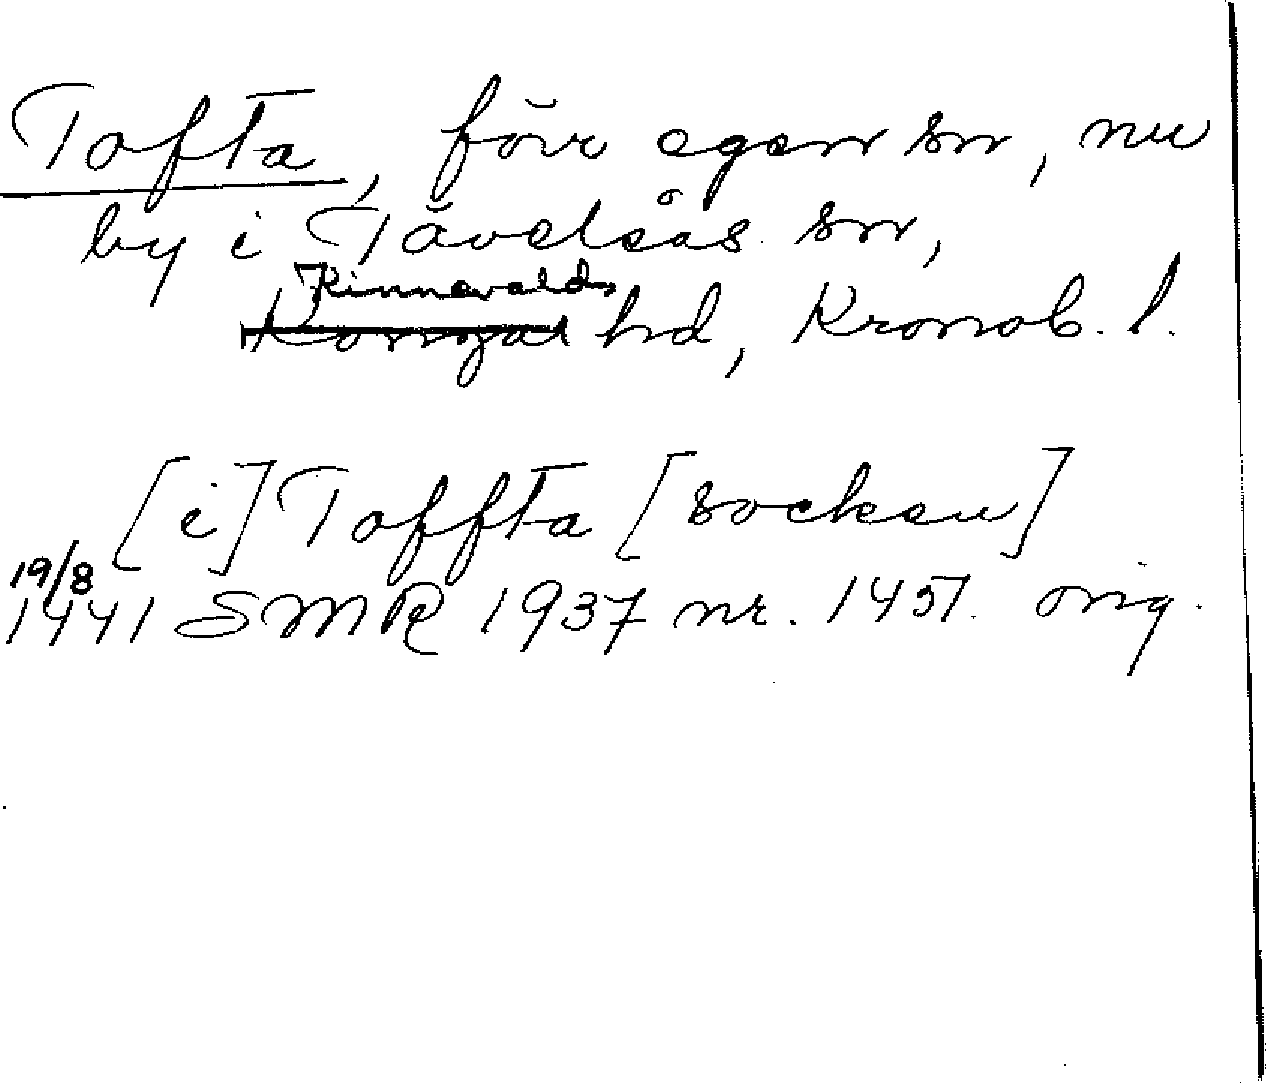 Tofta, förr egen sn, nu
by i Tävelsås sn,
Kinnevalds
Konga hd, Kronob. l.
[i] Toffta [socken]
19/8
1441 SMR 1937 nr. 1451. orig.